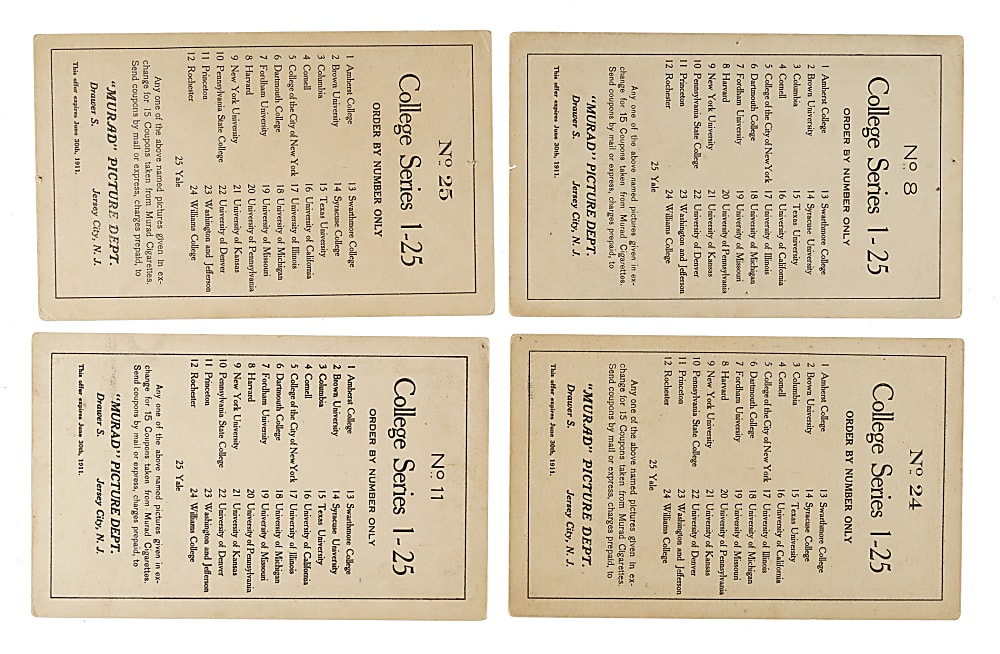 No. 25
College Series 1-25
ORDER BY NUMBER ONLY
1 Amherst College
2 Brown University
3 Columbia
4 Cornell
5 College of the City of New York
6 Dartmouth College
7 Fordham University
8 Harvard
9 New York University
10 Pennsylvania State College
11 Princeton
12 Rochester
13 Swarthmore College
14 Syracuse College
15 Texas University
16 University of California
17 University of Illinois
18 University of Michigan
19 University of Missouri
20 University of Pennsylvania
21 University of Kansas
22 University of Denver
23 Washington and Jefferson
24 Williams College
25 Yale
Any one of the above named pictures given in ex-
change for 15 Coupons taken from Murad Cigarettes.
Send coupons by mail or express, charges prepaid, to
"MURAD" PICTURE DEPT.
Drawer S. Jersey City, N. J.
This offer expires June 30th, 1911.
No. 8
College Series 1-25
ORDER BY NUMBER ONLY
1 Amherst College
2 Brown University
3 Columbia
4 Cornell
5 College of the City of New York
6 Dartmouth College
7 Fordham University
8 Harvard
9 New York University
10 Pennsylvania State College
11 Princeton
12 Rochester
13 Swarthmore College
14 Syracuse University
15 Texas University
16 University of California
17 University of Illinois
18 University of Michigan
19 University of Missouri
20 University of Pennsylvania
21 University of Kansas
22 University of Denver
23 Washington and Jefferson
24 Williams College
25 Yale
Any one of the above named pictures given in ex-
change for 15 Coupons taken from Murad Cigarettes.
Send coupons by mail or express, charges prepaid, to
"MURAD" PICTURE DEPT.
Drawer S. Jersey City, N. J.
This offer expires June 30th, 1911.
No. 11
College Series 1-25
ORDER BY NUMBER ONLY
1 Amherst College
2 Brown University
3 Columbia
4 Cornell
5 College of the City of New York
6 Dartmouth College
7 Fordham University
8 Harvard
9 New York University
10 Pennsylvania State College
11 Princeton
12 Rochester
13 Swarthmore College
14 Syracuse University
15 Texas University
16 University of California
17 University of Illinois
18 University of Michigan
19 University of Missouri
20 University of Pennsylvania
21 University of Kansas
22 University of Denver
23 Washington and Jefferson
24 Williams College
25 Yale
Any one of the above named pictures given in ex-
change for 15 Coupons taken from Murad Cigarettes.
Send coupons by mail or express, charges prepaid, to
"MURAD" PICTURE DEPT.
Drawer S. Jersey City, N. J.
This offer expires June 30th, 1911.
No. 24
College Series 1-25
ORDER BY NUMBER ONLY
1 Amherst College
2 Brown University
3 Columbia
4 Cornell
5 College of the City of New York
6 Dartmouth College
7 Fordham University
8 Harvard
9 New York University
10 Pennsylvania State College
11 Princeton
12 Rochester
13 Swarthmore College
14 Syracuse College
15 Texas University
16 University of California
17 University of Illinois
18 University of Michigan
19 University of Missouri
20 University of Pennsylvania
21 University of Kansas
22 University of Denver
23 Washington and Jefferson
24 Williams College
25 Yale
Any one of the above named pictures given in ex-
change for 15 Coupons taken from Murad Cigarettes.
Send coupons by mail or express, charges prepaid, to
"MURAD" PICTURE DEPT.
Drawer S. Jersey City, N. J.
This offer expires June 30th, 1911.